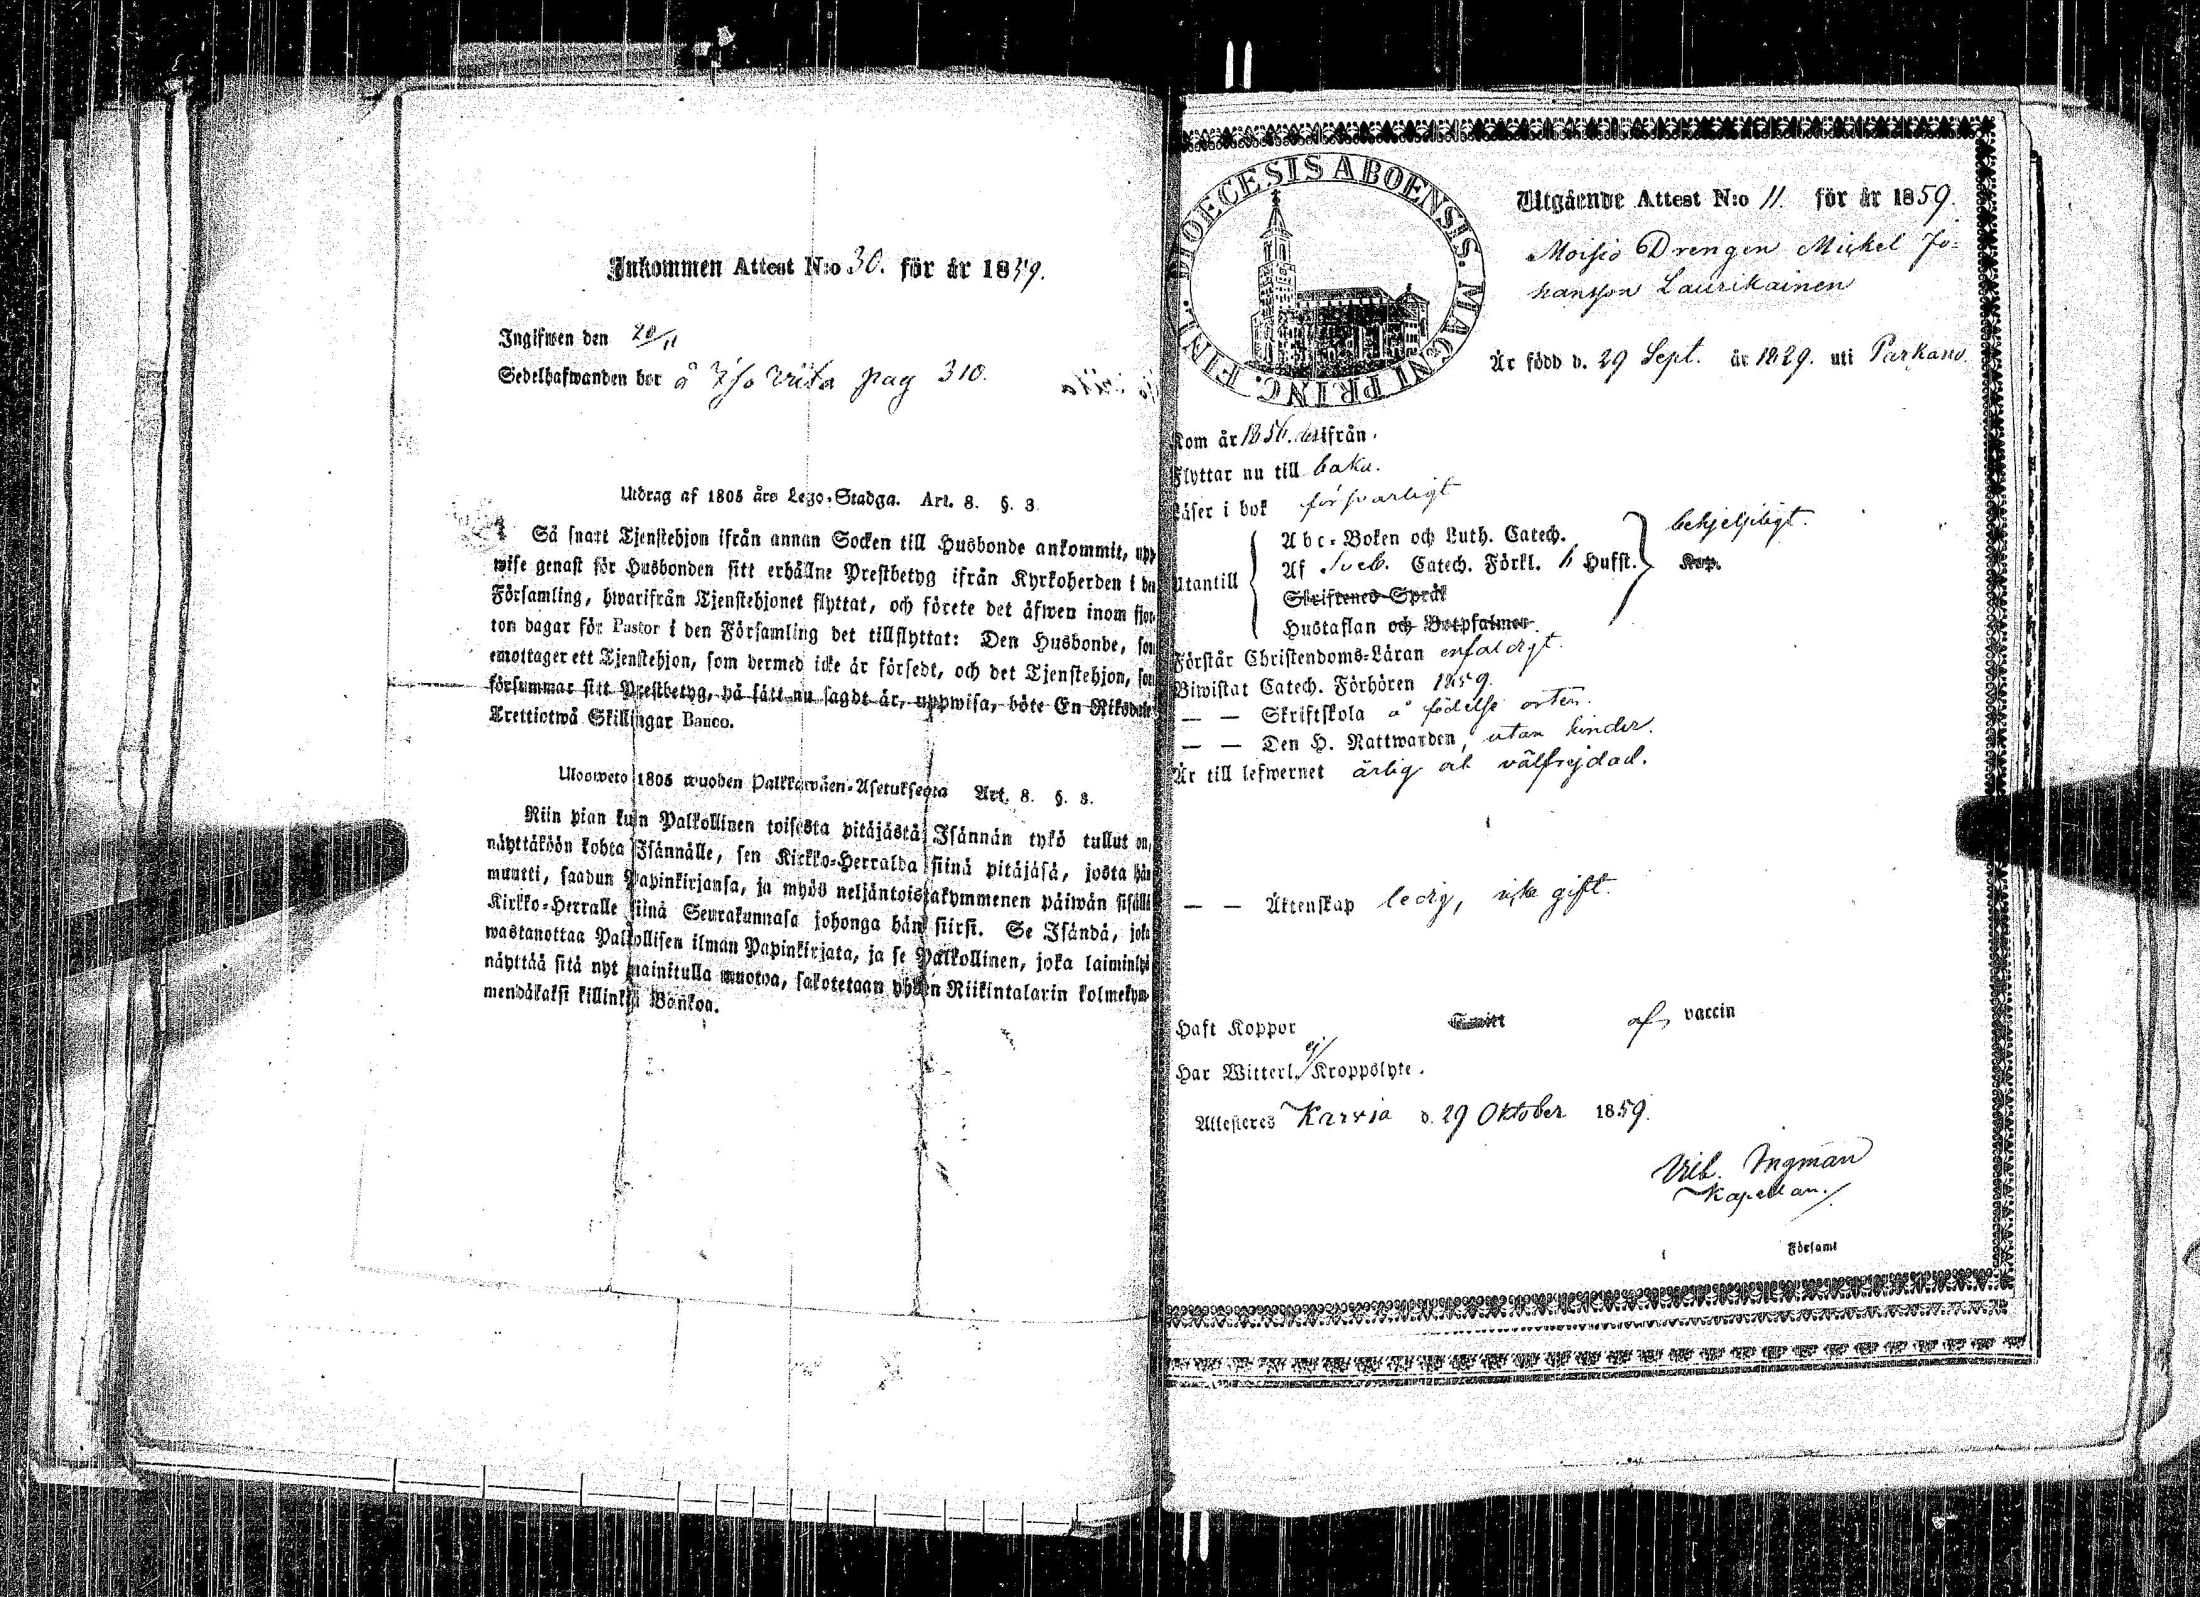 Inkommen Attest N:o 30. för år 1859.
Ingifwen den 20/11
Sedelhafwanden bor å Iso Vita pag 310.
Utdrag af 1805 års Lego-Stadga. Art. 8. §. 3.
Så snart Tjenstehjon ifrån annan Socken till Husbonde ankommit, upp-
wise genast för Husbonden sitt erhållne Prestbetyg ifrån Kyrkoherden i den
Församling, hwarifrån Tjenstehjonet flyttat, och förete det äfwen inom fjor-
ton dagar för Pastor i den Församling det tillflyttat: Den Husbonde, som
emottager ett Tjenstehjon, som dermed icke är försedt, och det Tjenstehjon, som
försummar sitt Prestbetyg, på sätt nu sagdt är, uppwisa, böte En Riksdaler
Trettiotwå Skillingar Banco.
Ulosweto 1805 wuoden Palkkawäen-Asetuksesta Art. 8. §. 3.
Niin pian kuin Palkollinen toisesta pitäjästä Isännän tykö tullut on,
näyttäköön kohta Isännälle, sen Kirkko-Herralda siinä pitäjäsä, josta hän
muutti, saadun Papinkirjansa, ja myös neljäntoistakymmenen päiwän sisällä
Kirkko-Herralle siinä Seurakunnasa johonga hän siirsi. Se Isändä, joka
wastanottaa Palkollisen ilman Papinkirjata, ja se Palkollinen, joka laiminlyö
näyttää sitä nyt mainitulla muotoa, sakotetaan yhden Riikintalarin kolmekym-
mendäkaksi killinkiä Bankoa.
DIOECESIS ABOENSIS. MAGNI PRINC. FINL.
Utgående Attest N:o 11. för år 1859.
Moisio Drengen Mickel Jo-
hansson Laurikainen
Är född d. 29 Sept. år 1829. uti Parkano.
Kom år 1856. derifrån.
Flyttar nu till baka.
Läser i bok försvarligt
Abc-Boken och Luth. Catech. behjelpligt.
Utantill Af Sveb. Catech. Förkl. 6 Hufst. Kap.
Skriftenes Språk
Hustaflan och Botpsalmer.
Förstår Christendoms-Läran enfaldigt.
Biwistat Catech. Förhören 1859.
— — Skriftskola å födelse orten.
— — Den H. Nattwarden, utan hinder.
Är till lefwernet ärlig och välfrejdad.
— — Äktenskap ledig, icke gift.
Haft Koppor af vaccin
Har Witterl. ej Kroppslyte.
Attesteres Karvia d. 29 Oktober 1859.
Vilh. Ingman
Kapellan.
i Församl